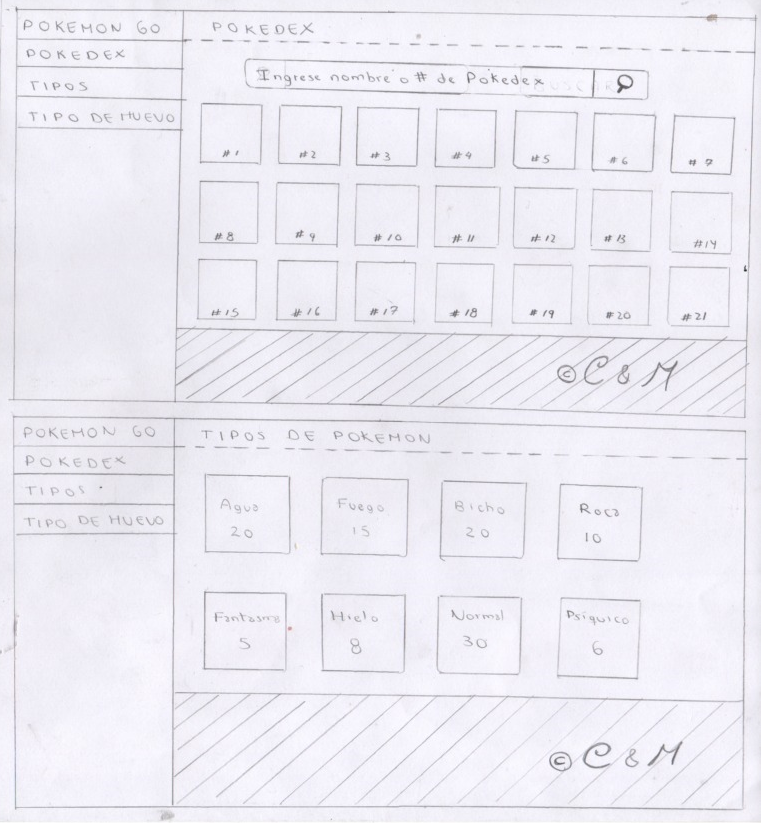 POKEMON GO
POKEDEX
TIPOS
TIPO DE HUEVO
POKEDEX
Ingrese nombre o # de Pokedex
BUSCAR
#1 #2 #3 #4 #5 #6 #7
#8 #9 #10 #11 #12 #13 #14
#15 #16 #17 #18 #19 #20 #21
© C & M
POKEMON GO
POKEDEX
TIPOS
TIPO DE HUEVO
TIPOS DE POKEMON
Agua Fuego Bicho Roca
20 15 20 10
Fantasma Hielo Normal Psiquico
5 8 30 6
© C & M